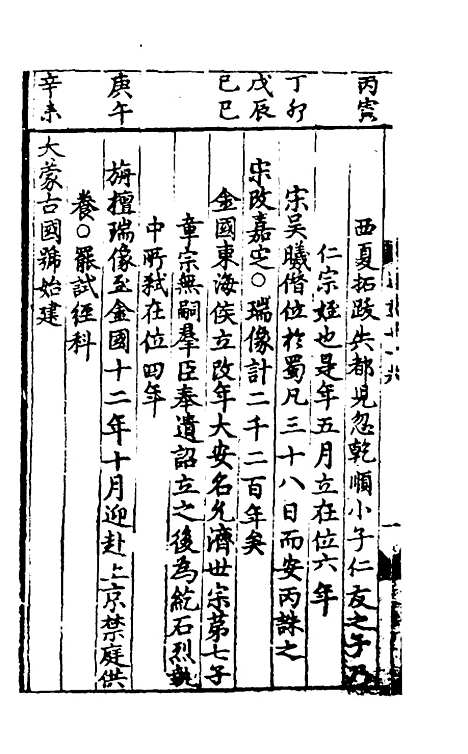 丙寅
西夏拓跋失都兒忽乾順小子仁友之子乃
仁宗姪也是年五月立在位六年
丁卯
宋吳曦僭位於蜀凡三十八日而安丙誅之
戊辰
宋改嘉定○瑞像計二千二百年矣
己巳
金國東海侯立改年大安名允濟世宗第七子
章宗無嗣羣臣奉遺詔立之後為紇石烈執
中所弒在位四年
庚午
旃檀瑞像至金國十二年十月迎赴上京禁庭供
養○罷試經科
辛未
大蒙古國號始建